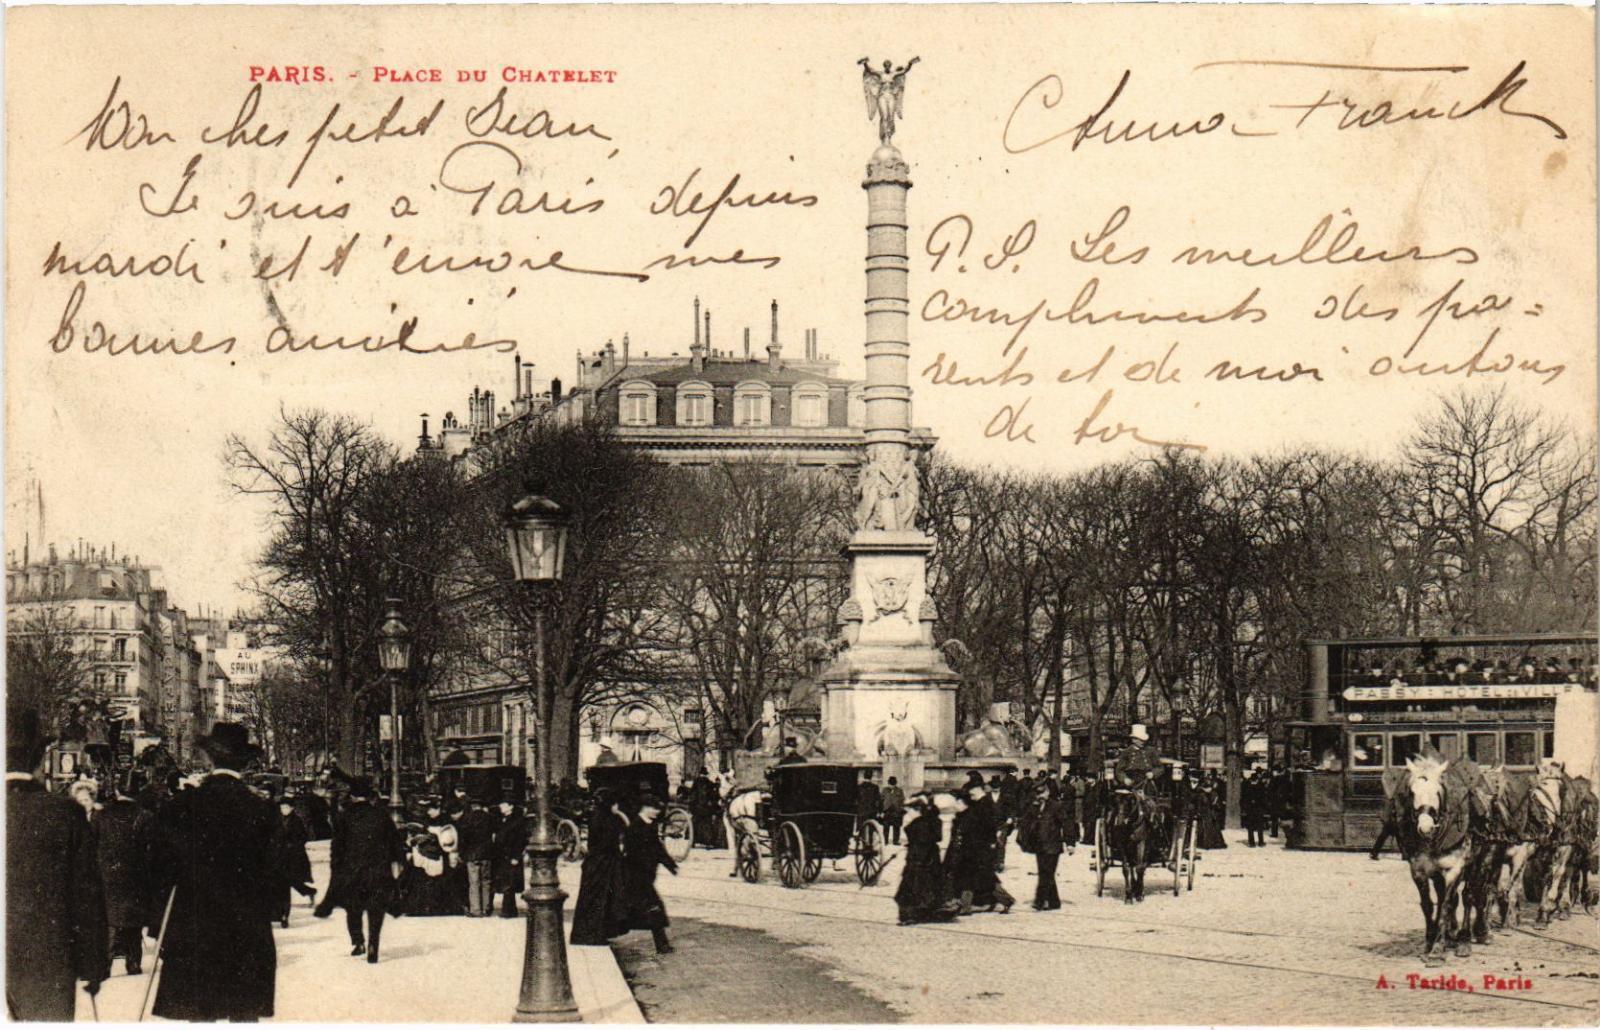 PARIS. - PLACE DU CHATELET
Mon cher petit Jean,
Je suis à Paris depuis
mardi et t'envoie mes
bonnes amitiés.
Anna Franck
P. S. Les meilleurs
compliments des pa=
rents et de moi autour
de toi
AU
SPHINX
PASSY - HOTEL DE VILLE
A. Taride, Paris